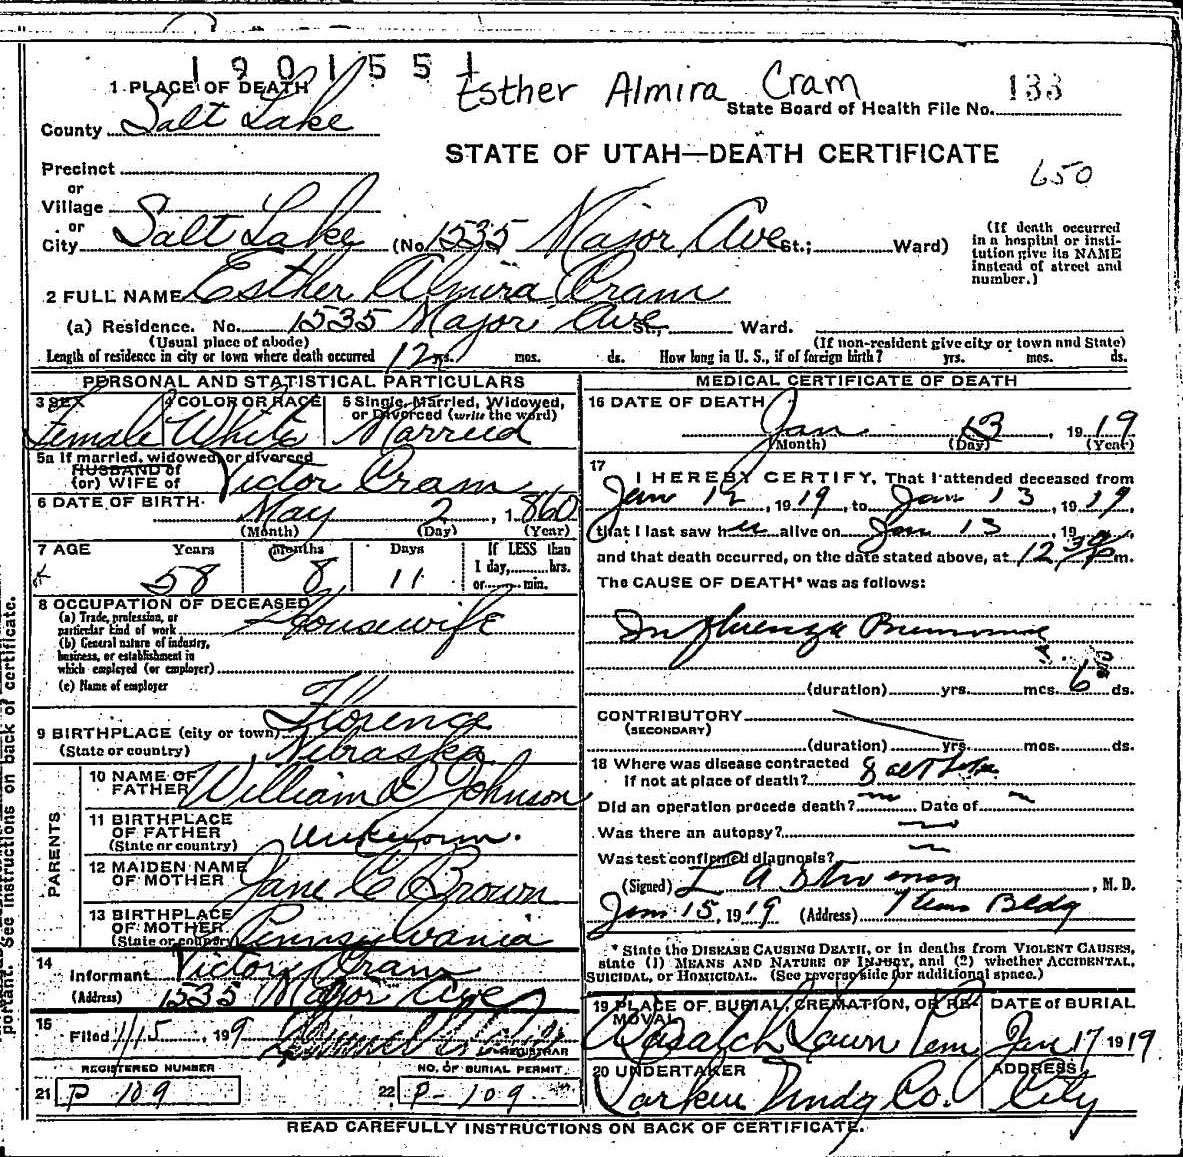 1901551
Esther Almira Cram
133
1 PLACE OF DEATH
State Board of Health File No.
County Salt Lake
STATE OF UTAH—DEATH CERTIFICATE
650
Precinct
or
Village
or
City Salt Lake (No. 1535 Major Ave St.; Ward)
(If death occurred in a hospital or insti-
tution give its NAME instead of street and
number.)
2 FULL NAME Esther Almira Cram
(a) Residence. No. 1535 Major Ave St., Ward.
(Usual place of abode) (If non-resident give city or town and State)
Length of residence in city or town where death occurred 12 yrs. mos. ds. How long in U. S., if of foreign birth? yrs. mos. ds.
PERSONAL AND STATISTICAL PARTICULARS
3 SEX 4 COLOR OR RACE 5 Single, Married, Widowed,
or Divorced (write the word)
Female White Married
5a If married, widowed, or divorced
HUSBAND of
(or) WIFE of Victor Cram
6 DATE OF BIRTH May 2, 1860
(Month) (Day) (Year)
7 AGE Years Months Days If LESS than
1 day, hrs.
or min.
58 8 11
8 OCCUPATION OF DECEASED
(a) Trade, profession, or
particular kind of work Housewife
(b) General nature of industry,
business, or establishment in
which employed (or employer)
(c) Name of employer
9 BIRTHPLACE (city or town) Florence
(State or country) Nebraska
PARENTS
10 NAME OF
FATHER William D Johnson
11 BIRTHPLACE
OF FATHER
(State or country) Unknown.
12 MAIDEN NAME
OF MOTHER Jane C Brown
13 BIRTHPLACE
OF MOTHER
(State or country) Pennsylvania
14
Informant Victor Cram
(Address) 1535 Major Ave
15
Filed 1/15, 1919
REGISTRAR
REGISTERED NUMBER NO. OF BURIAL PERMIT.
21 P 109 22 P-109
MEDICAL CERTIFICATE OF DEATH
16 DATE OF DEATH
Jan 13, 1919
(Month) (Day) (Year)
17
I HEREBY CERTIFY, That I attended deceased from
Jan 12, 1919, to Jan 13, 1919,
that I last saw her alive on Jan 13, 19
and that death occurred, on the date stated above, at 12 30 P m.
The CAUSE OF DEATH* was as follows:
Influenza Pneumonia
(duration) yrs. mos. 6 ds.
CONTRIBUTORY
(SECONDARY)
(duration) yrs. mos. ds.
18 Where was disease contracted
if not at place of death? Salt Lake
Did an operation precede death? Date of
Was there an autopsy?
Was test confirmed diagnosis?
(Signed) L A , M. D.
Jan 15, 1919 (Address) Bldg
* State the DISEASE CAUSING DEATH, or in deaths from VIOLENT CAUSES,
state (1) MEANS AND NATURE OF INJURY, and (2) whether ACCIDENTAL,
SUICIDAL, or HOMICIDAL. (See reverse side for additional space.)
19 PLACE OF BURIAL, CREMATION, OR RE-
MOVAL DATE of BURIAL
Wasatch Lawn Cem Jan 17 1919
20 UNDERTAKER ADDRESS
Larkin Undg Co. City
READ CAREFULLY INSTRUCTIONS ON BACK OF CERTIFICATE.
portant. See instructions on back of certificate.